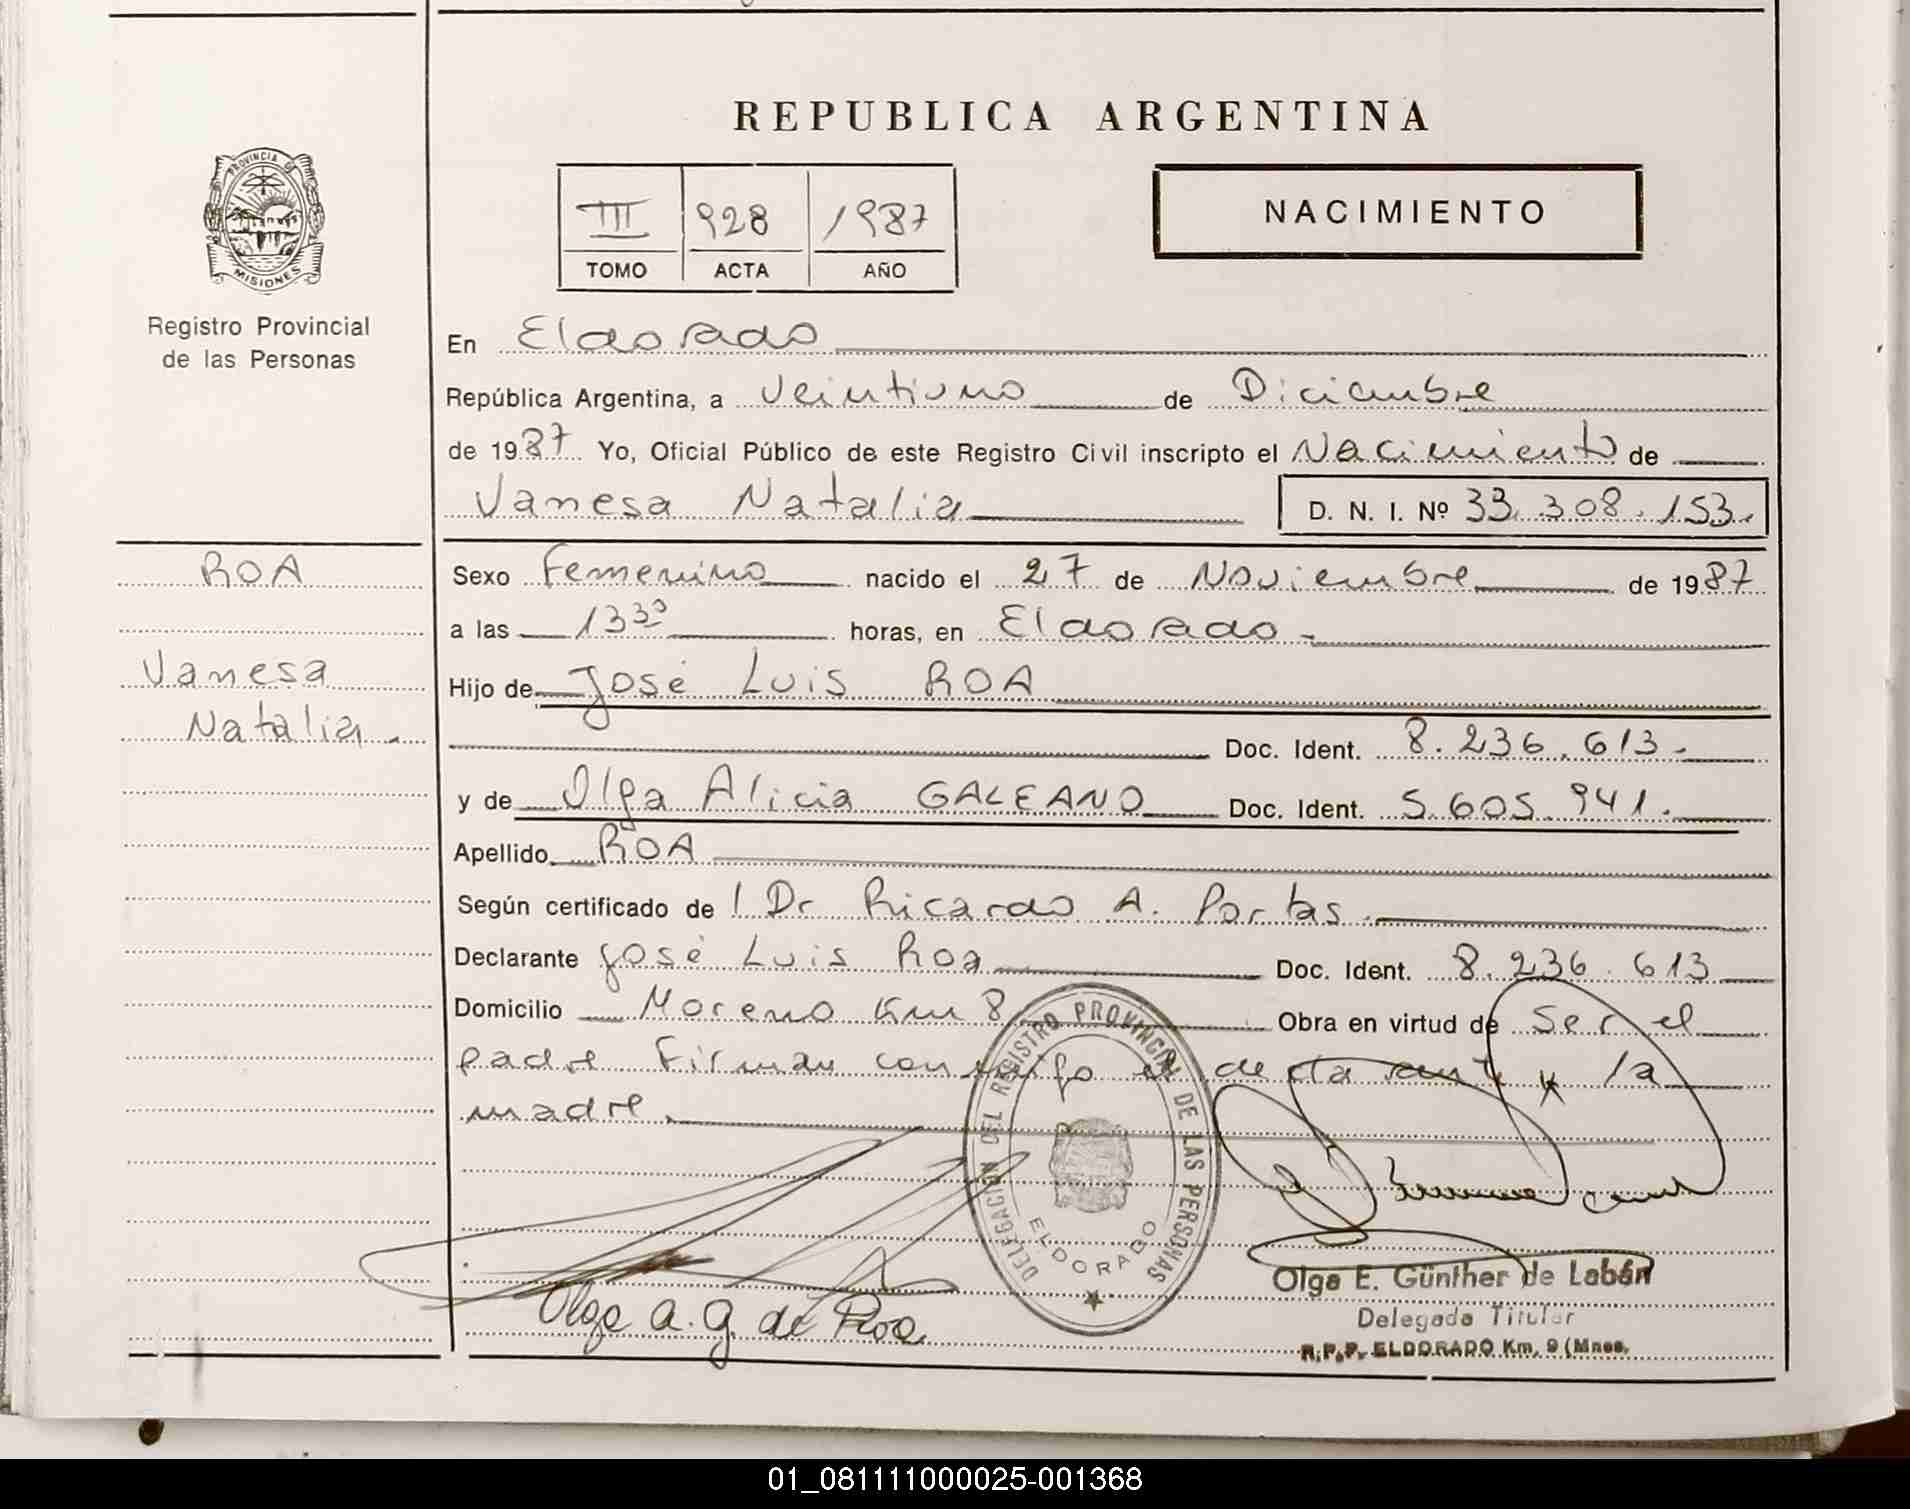 REPUBLICA ARGENTINA
PROVINCIA DE
MISIONES
Registro Provincial
de las Personas
III 928 1987
TOMO ACTA AÑO
NACIMIENTO
En Eldorado
República Argentina, a veintiuno de Diciembre
de 1987 Yo, Oficial Público de este Registro Civil inscripto el Nacimiento de
Vanesa Natalia D. N. I. Nº 33.308.153.
ROA
Vanesa
Natalia.
Sexo Femenino nacido el 27 de Noviembre de 1987
a las 13³⁰ horas, en Eldorado.
Hijo de José Luis ROA
Doc. Ident. 8.236.613.
y de Olga Alicia GALEANO Doc. Ident. 5.605.941.
Apellido ROA
Según certificado de l Dr Ricardo A. Portas.
Declarante José Luis Roa Doc. Ident. 8.236.613
Domicilio Moreno Km 8 Obra en virtud de Ser el
padre Firman conmigo el declarante y la
madre.
DELEGACIÓN DEL REGISTRO PROVINCIAL DE LAS PERSONAS
ELDORADO
Olga A. G. de Roa
Olga E. Günther de Labán
Delegada Titular
R.P.P. ELDORADO Km. 9 (Mnes.
01_081111000025-001368